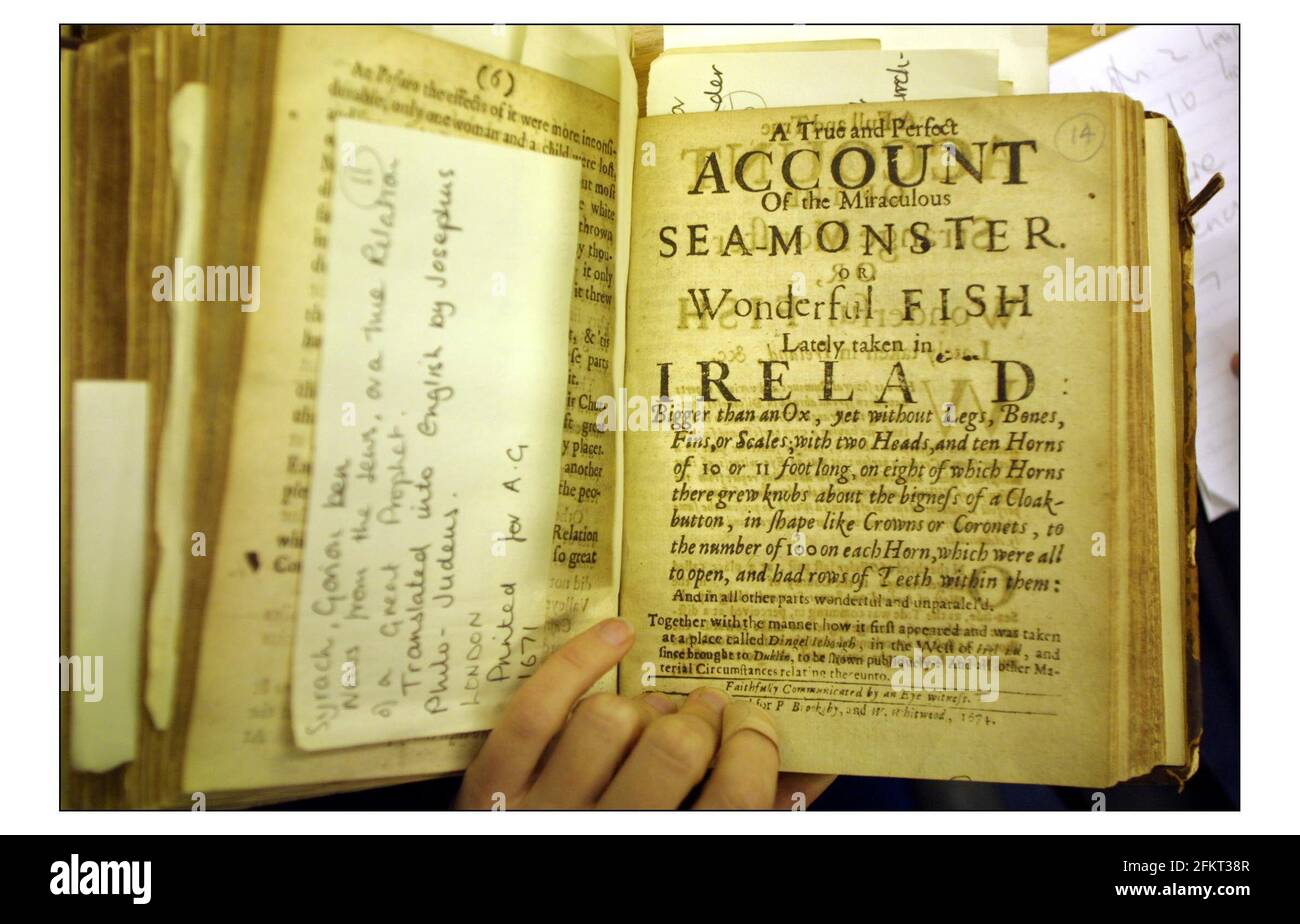 (6)
An Peſaro the effects of it were more inconſi-
derable, only one woman and a child were loſt,
ut moſt
e white
thrown
y thou-
it only
it threw
parts
it.
great
y places.
another
the peo-
Relation
ſo great
11
Syrach, Gorion ben
News from the Jews, or a True Relation
of a Great Prophet.
Translated into English by Josephus
Philo-Judeus.
LONDON
Printed for A.G
1671
14
A True and Perfect
ACCOUNT
Of the Miraculous
SEA-MONSTER.
OR
Wonderful FISH
Lately taken in
IRELA D :
Bigger than an Ox, yet without Legs, Bones,
Fins, or Scales, with two Heads, and ten Horns
of 10 or 11 foot long, on eight of which Horns
there grew knobs about the bigneſs of a Cloak-
button, in ſhape like Crowns or Coronets, to
the number of 100 on each Horn, which were all
to open, and had rows of Teeth within them:
And in all other parts wonderful and unparalel'd.
Together with the manner how it firſt appeared and was taken
at a place called Dingel Ichough, in the Weſt of and
ſince brought to Dublin, to be ſhown other Ma-
terial Circumſtances relating thereunto.
Faithfully Communicated by an Eye witneſs.
for P. Brooksby, and W. Whitwood, 1674.
a
alamy
Image ID: 2CFKT38R
www.alamy.com